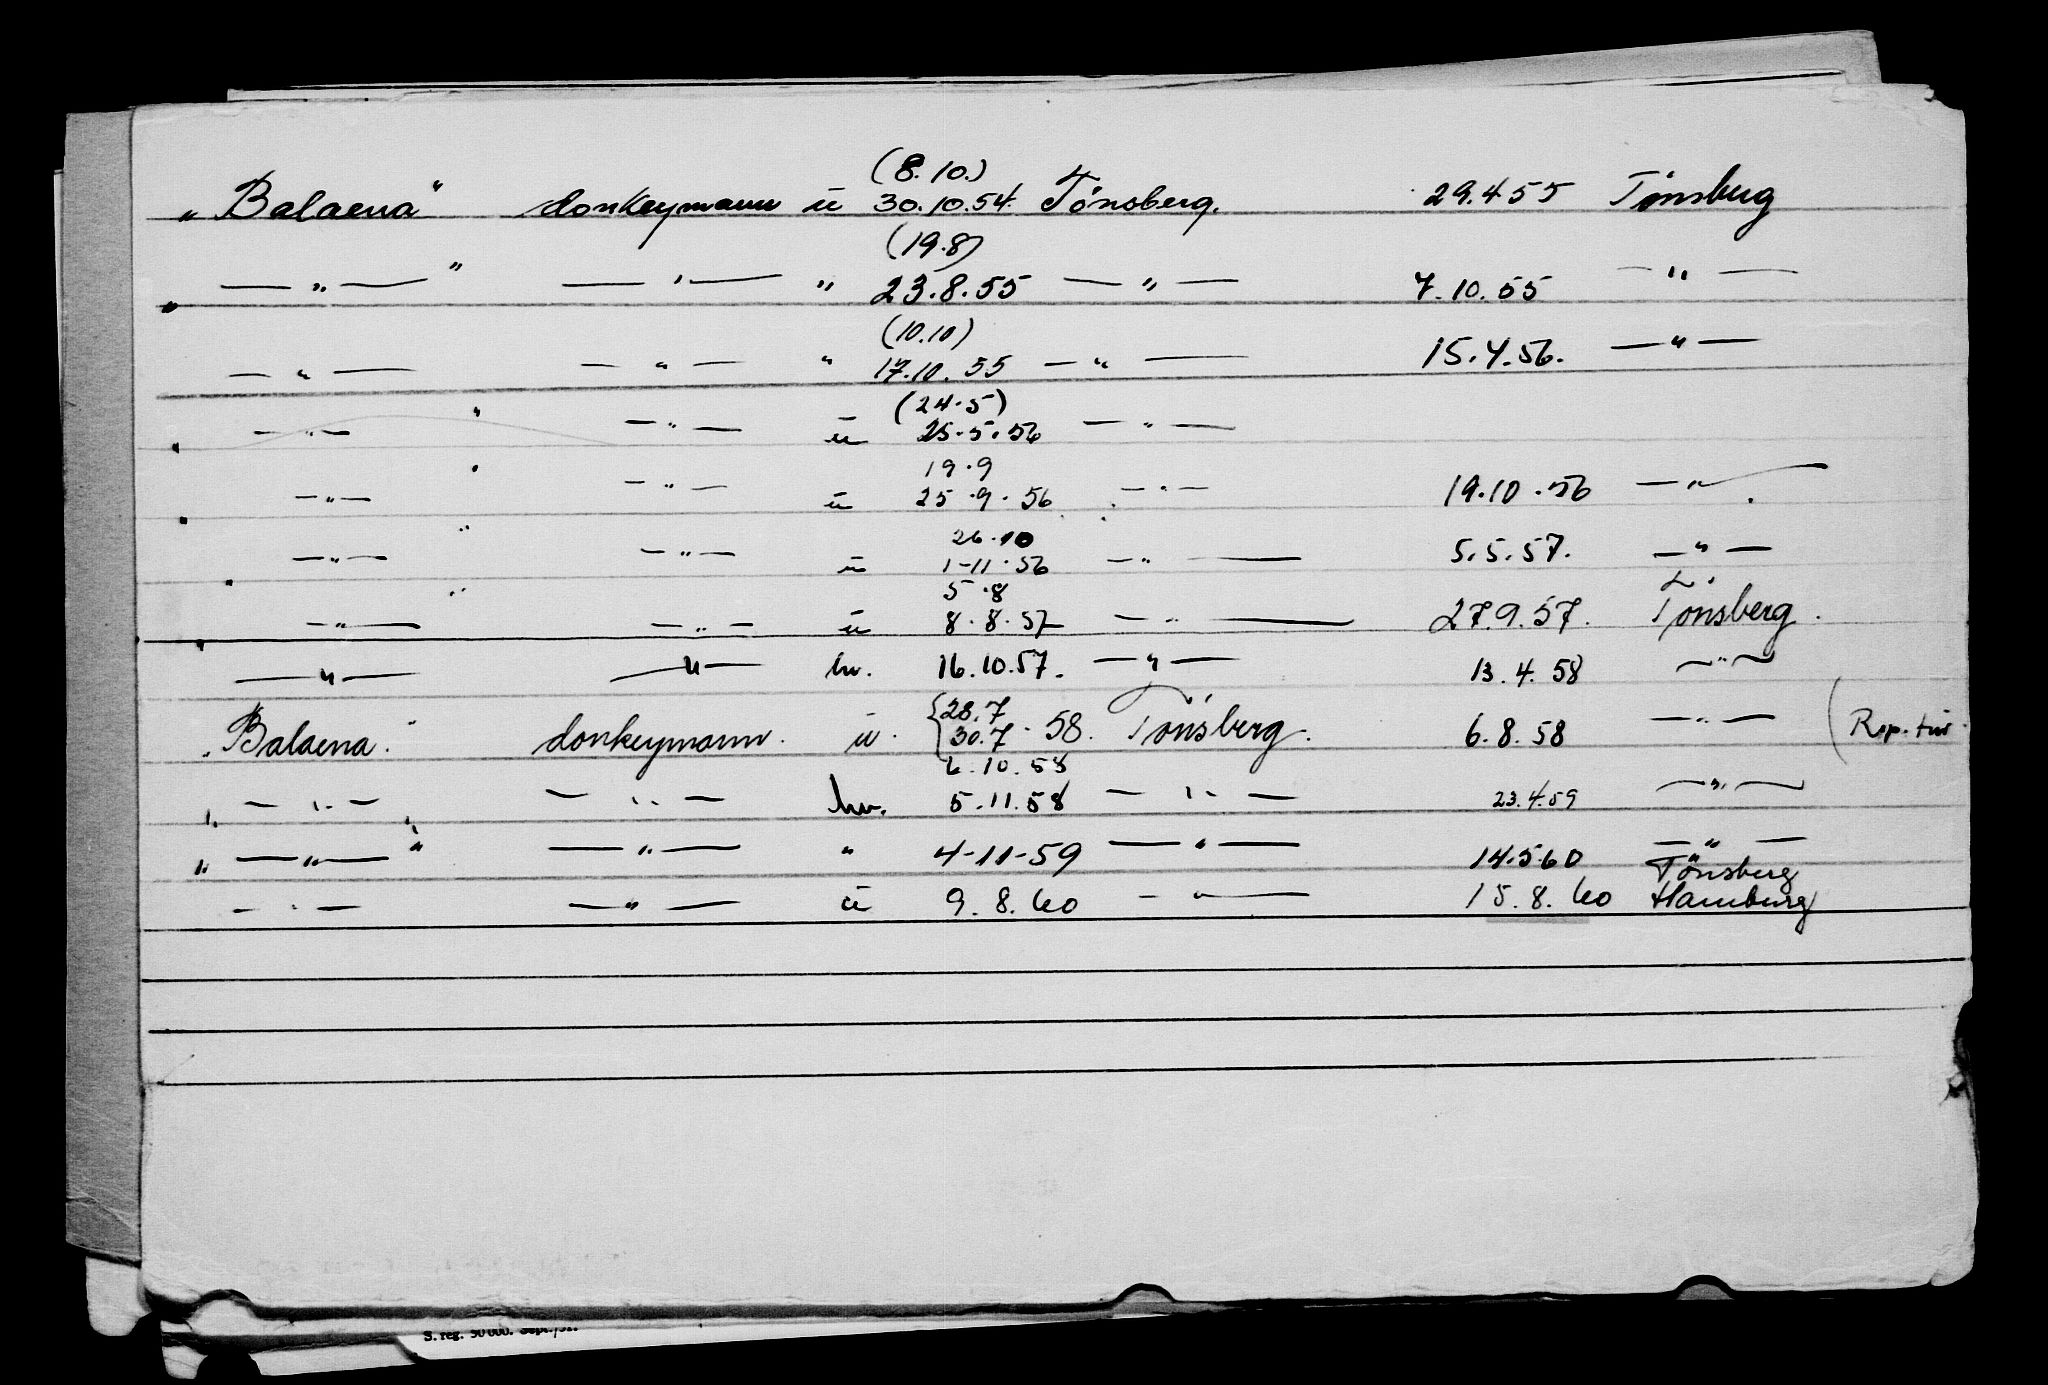 (8.10.)
„Balaena" donkeymann u 30.10.54. Tönsberg. 29.4.55 Tönsberg
(19.8)
„ — „ — " — " — " 23.8.55 — „ — 7.10.55 — " —
(10.10)
— " — — " — " 17.10.55 — " — 15.4.56. — " —
(24.5)
" — " — " — " — u 25.5.56 — " —
19.9
" — " — — " — u 25.9.56 — " — 19.10.56 — " —
26.10
— " — " — " — u 1-11.56 — " — 5.5.57. — " —
5.8
" — " — " — " — u 8.8.57 — " — 27.9.57. Tönsberg.
— " — — " — hv. 16.10.57. — " — 13.4.58 — " —
28.7
„Balaena" donkeymann. u. 30.7.58. Tönsberg. 6.8.58 — " — (Rep.
6.10.58
„ — " — " — " — hv. 5.11.58 — " — 23.4.59 — " —
„ — " — " — " — " 4-11-59 — " — 14.5.60 — " —
Tönsberg
— " — — " — u 9.8.60 — " — 15.8.60 Hamburg
S. reg. 50 000. Sept./51.